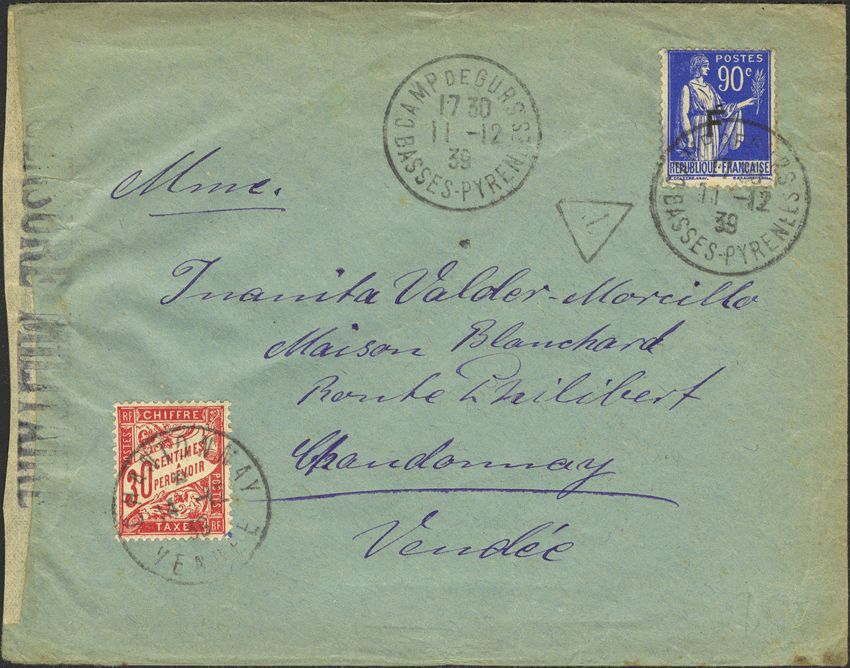 CAMP DE GURS
17 30
11 -12
39
BSSES-PYRENEES
POSTES
90c
F
REPUBLIQUE-FRANÇAISE
11 -12
39
BASSES-PYRENEES
T
Mme.
Juanita Valder-Morcillo
Maison Blanchard
Route Philibert
Chandonnay
Vendée
RF CHIFFRE
POSTES
30 CENTIMES
A
PERCEVOIR
POSTES
TAXE RF
39
VENDEE
MILITAIRE